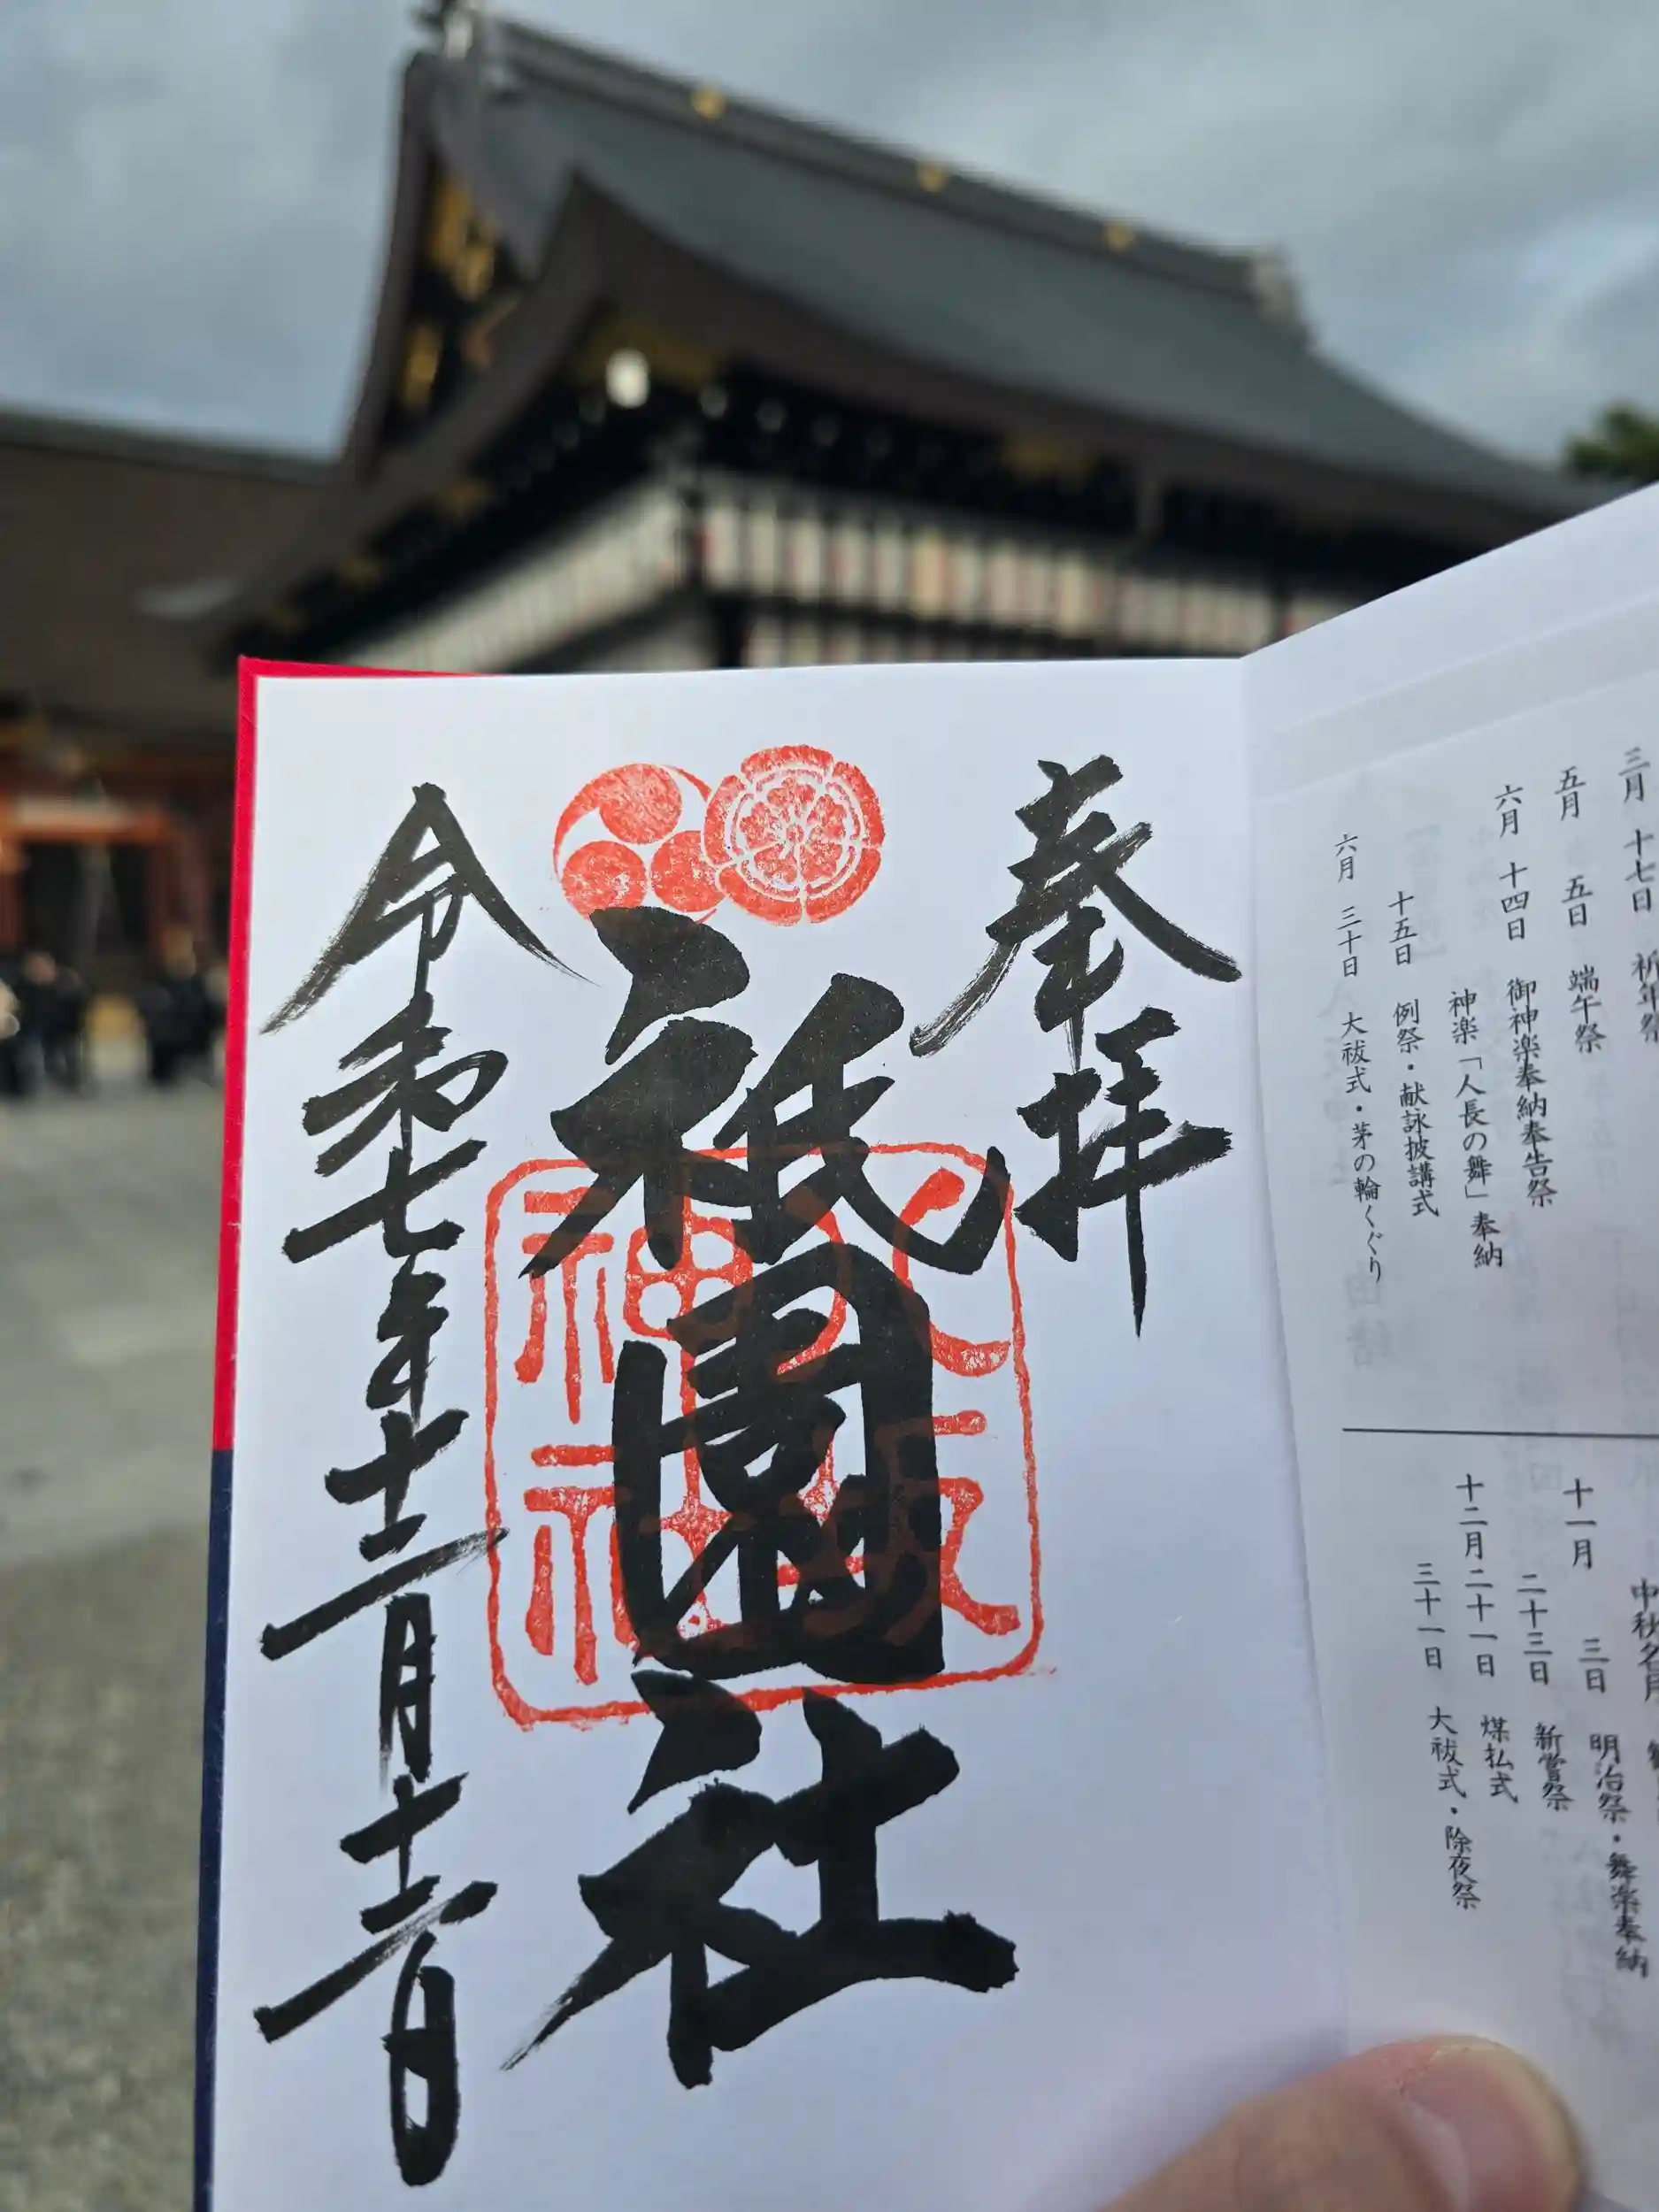 三月 十七日 祈年祭
五月 五日 端午祭
六月 十四日 御神楽奉納奉告祭
神楽「人長の舞」奉納
十五日 例祭・献詠披講式
六月 三十日 大祓式・茅の輪くぐり
中秋名月
十一月 三日 明治祭・舞楽奉納
二十三日 新嘗祭
十二月二十一日 煤払式
三十一日 大祓式・除夜祭
奉拝
祇園社
八坂神社
令和七年十二月十二日